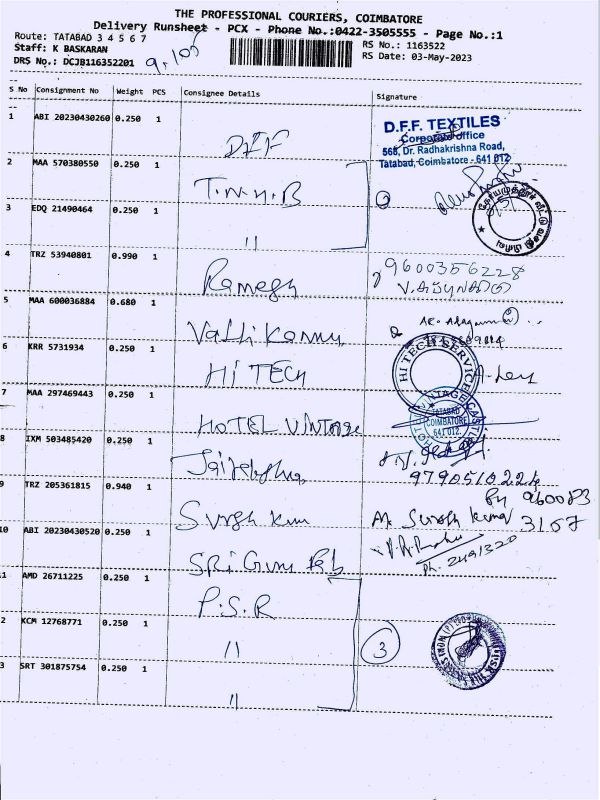 THE PROFESSIONAL COURIERS, COIMBATORE
Delivery Runsheet - PCX - Phone No.:0422-3505555 - Page No.:1
Route: TATABAD 3 4 5 6 7
RS No.: 1163522
Staff: K BASKARAN
RS Date: 03-May-2023
DRS No.: DCJB116352201
S No Consignment No Weight PCS Consignee Details Signature
1 ABI 20230430260 0.250 1 DFF
D.F.F. TEXTILES
Corporate office
568, Dr. Radhakrishna Road,
Tatabad, Coimbatore - 641 012
2 MAA 570380550 0.250 1 T.N.H.B 2
3 EDQ 21490464 0.250 1 "
4 TRZ 53940801 0.990 1 Ramesh 9600356228
5 MAA 600036884 0.680 1 Valli Kannu
6 KRR 5731934 0.250 1 HI TECH
HI TECH SERVICE
7 MAA 297469443 0.250 1 HOTEL VINTAGE
TATABAD
COIMBATORE
641 012.
8 IXM 503485420 0.250 1
9790510224
9 TRZ 205361815 0.940 1 Suresh Kumar
10 ABI 20230430520 0.250 1 SRI Guru
Ph. 2491320
1 AMD 26711225 0.250 1 P.S.R
2 KCM 12768771 0.250 1 " 3
3 SRT 301875754 0.250 1 "